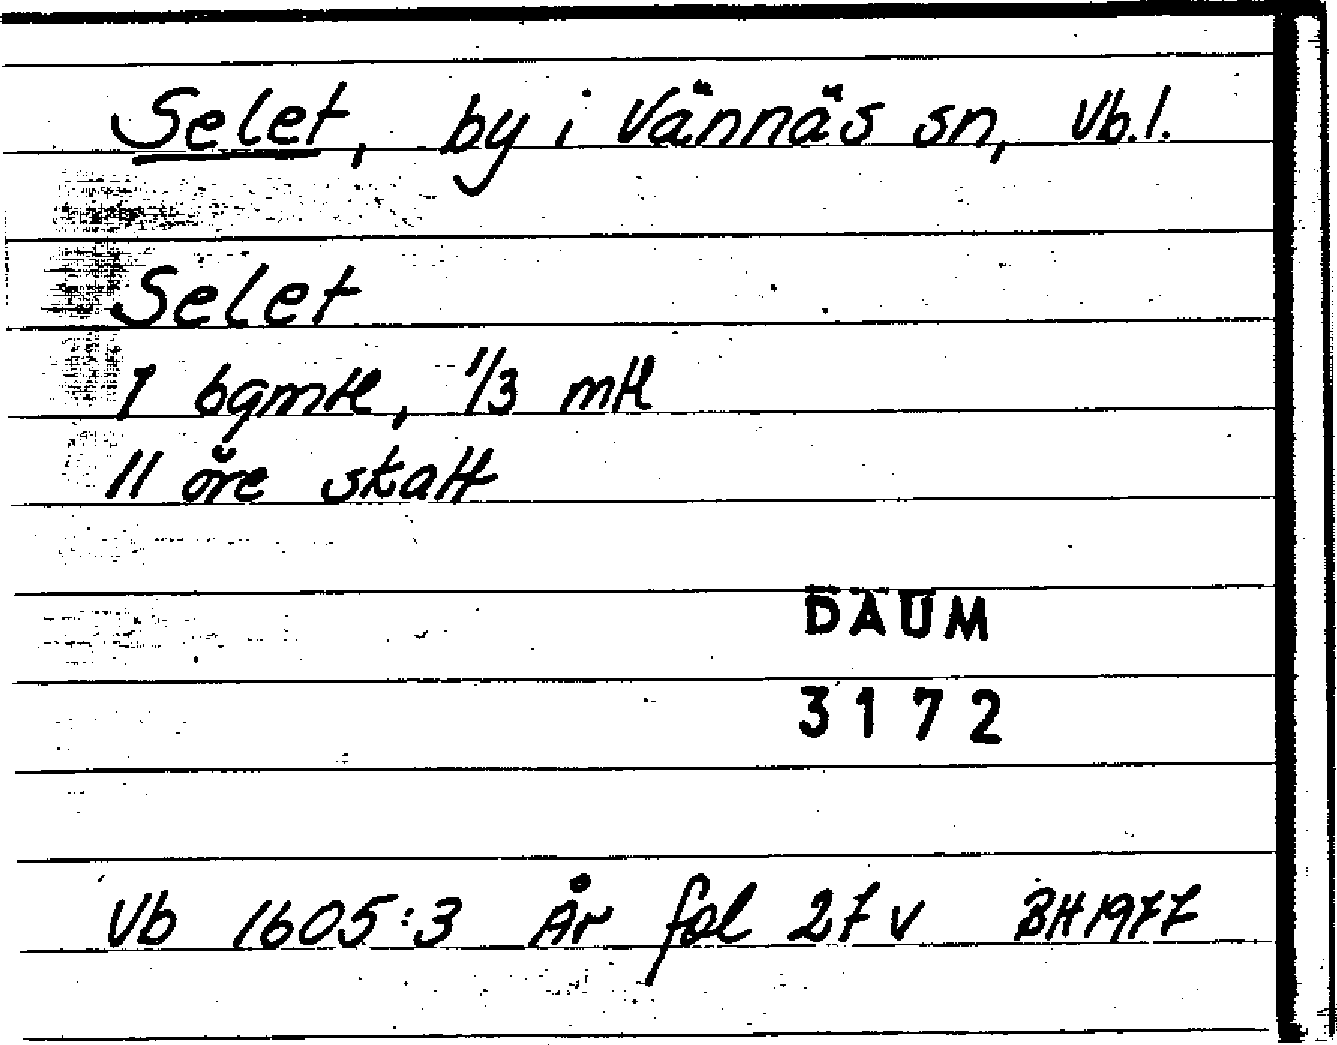 Selet, by i Vännäs sn, Vb.l.
Selet
1 bgmtl, 1/3 mtl
11 öre skatt
DAUM
3172
Vb 1605:3 År fol 27 v BH 1977